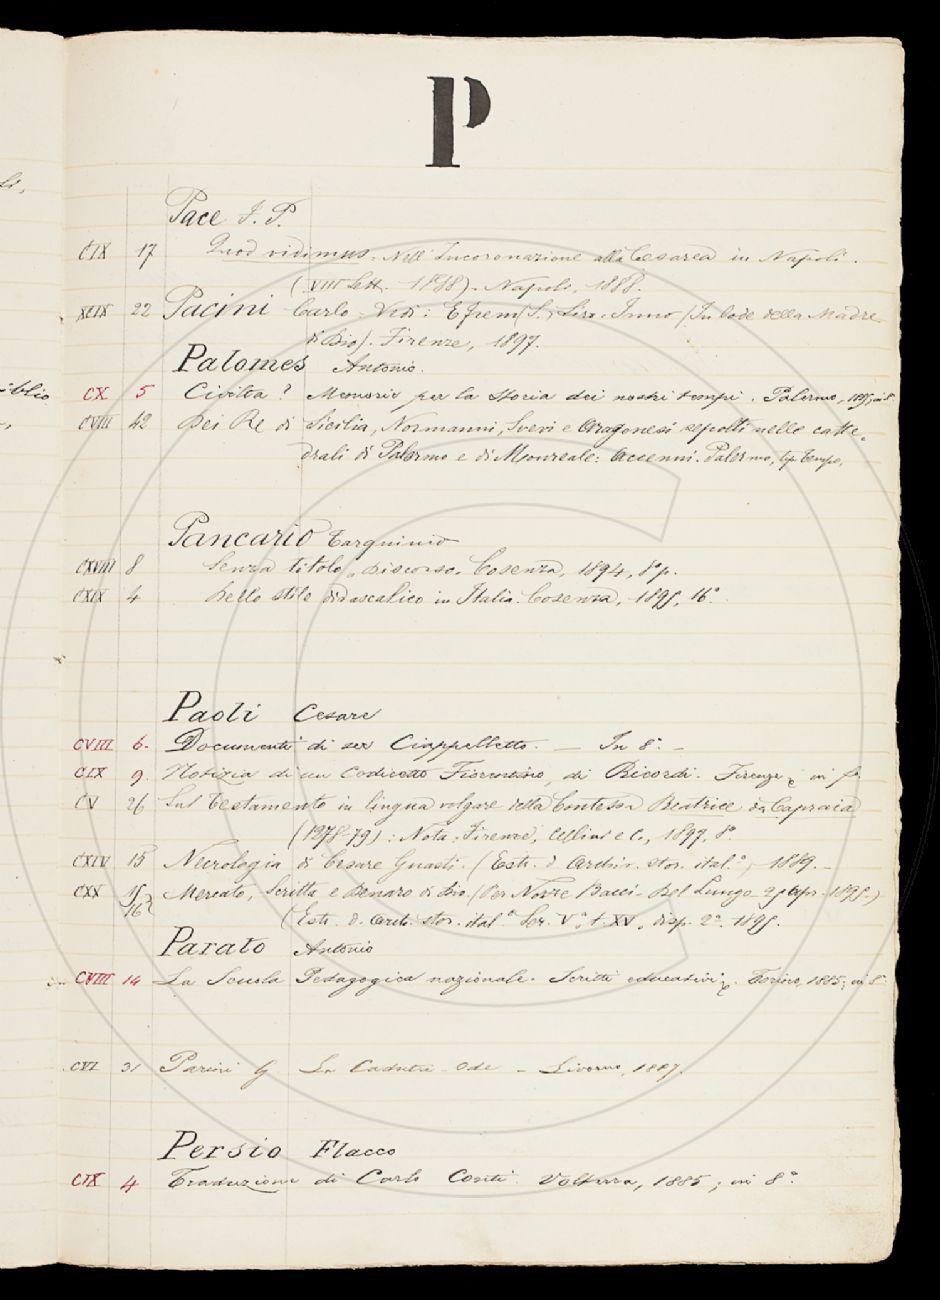 P
Pace J. P.
CIX 17 Quod vidimus. Nell' Incoronazione alla Cesarea in Napoli.
(VIII Sett. 1898). Napoli, 1888.
XCIX 22 Pacini Carlo. Vedi: Efrem (S.) Siro. Inno (In lode della Madre
di Dio). Firenze, 1897.
Palomes Antonio.
CX 5 Civiltà? Memorie per la storia dei nostri tempi. Palermo, in 8°
CVIII 42 Dei Re di Sicilia, Normanni, Svevi e Aragonesi sepolti nelle catte-
drali di Palermo e di Monreale: Accenni. Palermo, tip. Tempo.
Pancario Tarquinio
CXVIII 8 Senza titolo. Discorso. Cosenza, 1894, 8° p.
CXIX 4 Dello stile didascalico in Italia. Cosenza, 1895, 16°.
Paoli Cesare
CVIII 6. Documenti di ser Ciappelletto. — In 8°. —
CIX 9. Notizia di un Codicetto Fiorentino, di Ricordi. Firenze in
CV 26 Sul Testamento in lingua volgare della Contessa Beatrice da Capraia
(1278-79): Nota. Firenze, Cellini e C., 1897. 8°.
CXIV 15 Necrologia di Cesare Guasti. (Estr. d. Archiv. stor. ital.°, 1889. —
CXX 15 Mercato, Scritta e Denaro di Dio. (Per Nozze Bacci-Del Lungo 1895.)
16 (Estr. d. Arch. stor. ital.° Ser. V°, t. XV, disp. 2ª. 1895.
Parato Antonio
CVIII 14 La Scuola Pedagogica nazionale. Scritti educativi. Torino, 1885; in 8°
CVI 31 Parini G La Caduta Ode — Livorno, 1887.
Persio Flacco
CIX 4 Traduzione di Carlo Conti. Volterra, 1885; in 8°.